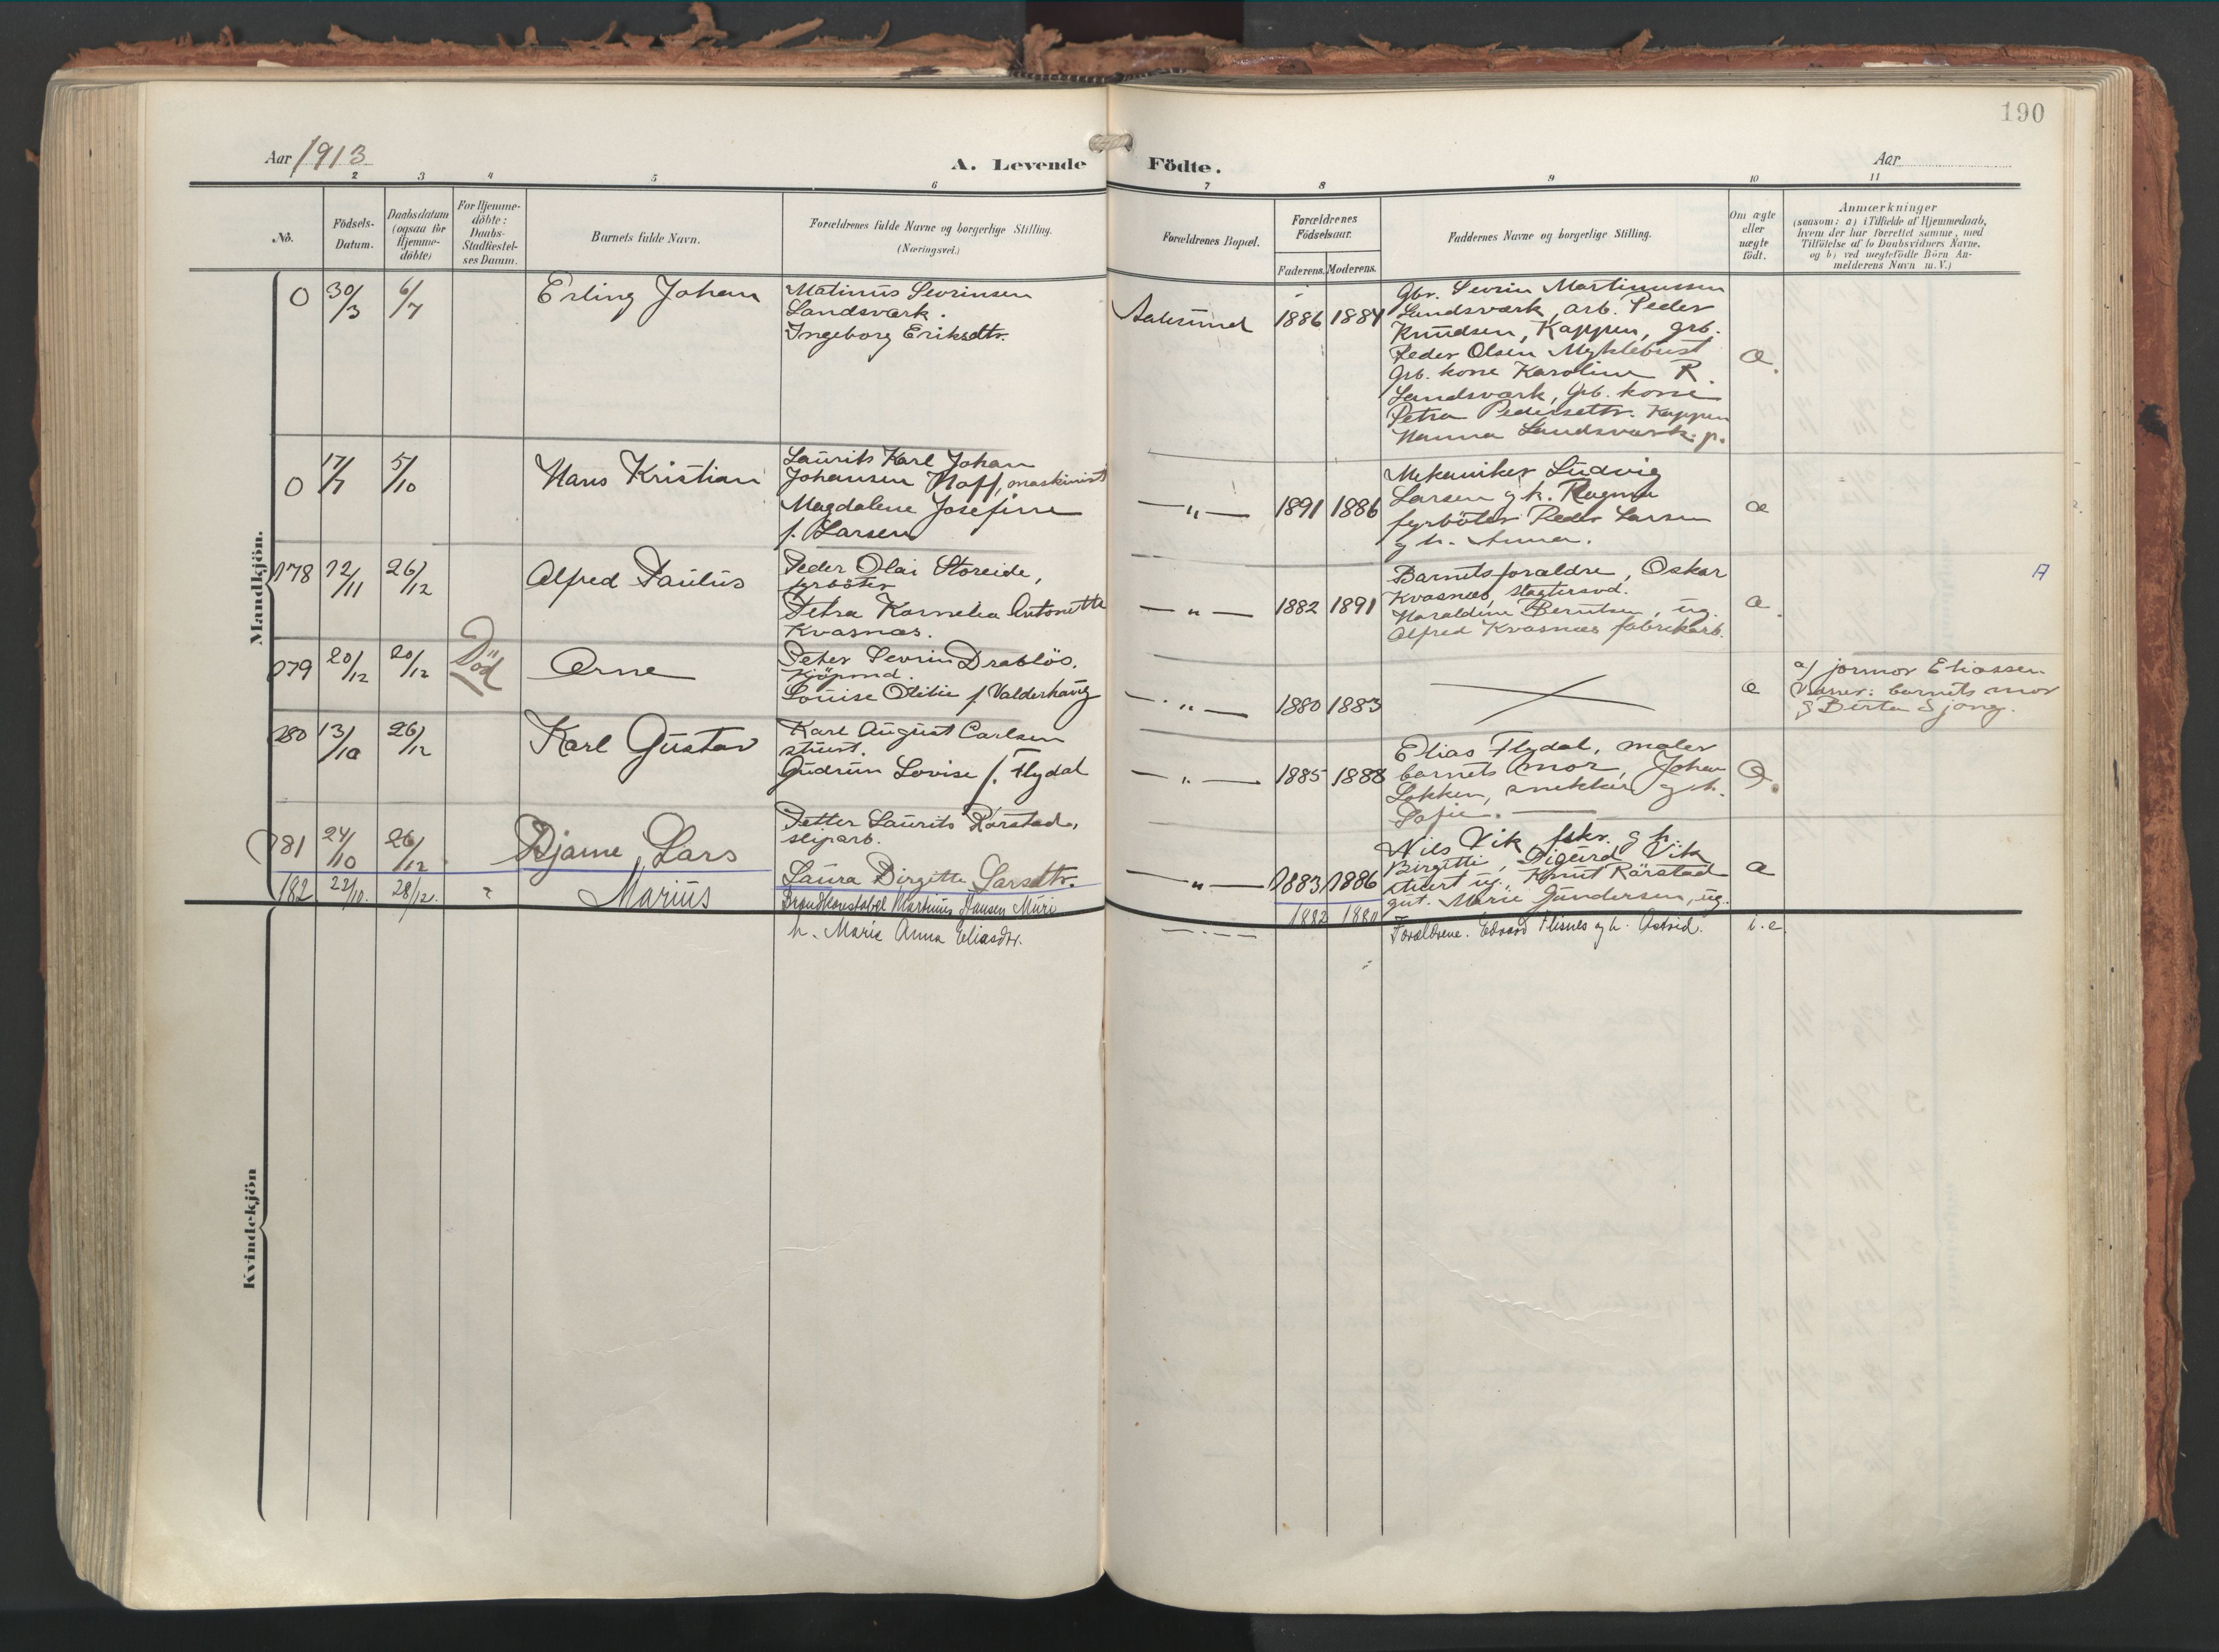 190
Aar 1913
A. Levende Födte.
Aar
1 2 3 4 5 6 7 8 9 10 11
No.
Födsels-
Datum.
Daabsdatum
(ogsaa for
Hjemme-
döbte)
For Hjemme-
döbte:
Daabs-
Stadfæstel-
ses Datum.
Barnets fulde Navn.
Forældrenes fulde Navne og borgerlige Stilling.
(Næringsvei.)
Forældrenes Bopæl.
Forældrenes
Födselsaar.
Faderens. Moderens.
Faddernes Navne og borgerlige Stilling.
Om ægte
eller
uægte
födt.
Anmærkninger
(saasom: a) i Tilfælde af Hjemmedaab,
hvem der har forrettet samme, med
Tilföielse af to Daabsvidners Navne,
og b) ved uægtefödte Börn An-
melderens Navn m. V.)
Mandkjön.
0 30/3 6/7
Erling Johan
Matinus Sevrinsen
Landsværk.
Ingeborg Eriksdtr.
Aalesund
1886 1884
Gbr. Sevrin Martinussen
Landsværk, arb. Peder
Knudsen, Kappen, grb.
Peder Olsen Myklebust
Grb. kone Karoline R.
Landsværk, Grb. kone
Petra Pedersdtr. Kappen
Hanna Landsværk. p.
æ.
0 17/7 5/10
Hans Kristian
Laurits Karl Johan
Johansen Hoff, maskinist
Magdalene Josefine
f. Larsen
— " —
1891 1886
Mekaniker Ludvig
Larsen g h. Ragna
fyrböter Peder Larsen
g h. Anna.
æ
178 12/11 26/12
Alfred Paulus
Peder Olai Storeide,
fyrböter
Petra Kornelia Antonette
Kvasnæs.
— " —
1882 1891
Barnets forældre, Oskar
Kvasnæs, slagtersvd.
Haraldine Berntsen, ug.
Alfred Kvasnæs fabrikarb.
æ.
A
179 20/12 20/12
Död
Arne
Peter Sevrin Drablös,
Kjöpmd.
Louise Otilie f. Valderhaug
— " —
1880 1883
æ
a/ jormor Eliassen
Vidner: barnets mor
g Berta Sjong.
180 13/10 26/12
Karl Gustav
Karl August Carlsen
stuert.
Gudrun Lovise f. Flydal
— " —
1885 1888
Elias Flydal, maler
barnets mor, Johan
Løkken, snekker g h.
Sofie. —
Æ.
181 24/10 26/12
Bjarne Lars
Petter Laurits Rørstad,
sliparb.
Laura Birgitte Larsdtr.
— " —
1883 1886
Nils Vik, fskr. g h.
Birgitte, Sigurd Vik
stuert ug., Knut Rørstad
gut. Marie Gundersen, ug.
æ
182 22/10. 28/12. "
Marius
Brandkonstabel Martinus Hansen Muri
h. Marie Anna Eliasdtr.
— . —
1882 1880
Forældrene. Edvard Flisnes og h. Astrid.
i. e.
Kvindekjön